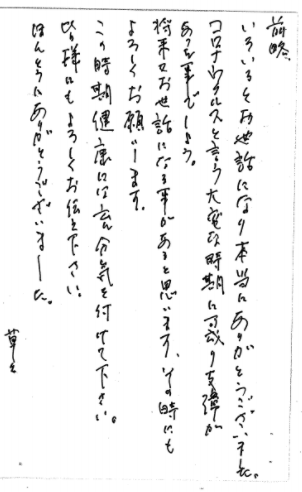 前略、
いろいろとお世話になり本当にありがとうございました。
コロナウイルスと言う大変な時期に成り支障が
あった事でしょう。
将来又お世話になる事があると思います、その時にも
よろしくお願いします。
この時期健康には充分気を付けて下さい。
皆様にもよろしくお伝え下さい。
ほんとうにありがとうございました。
草々